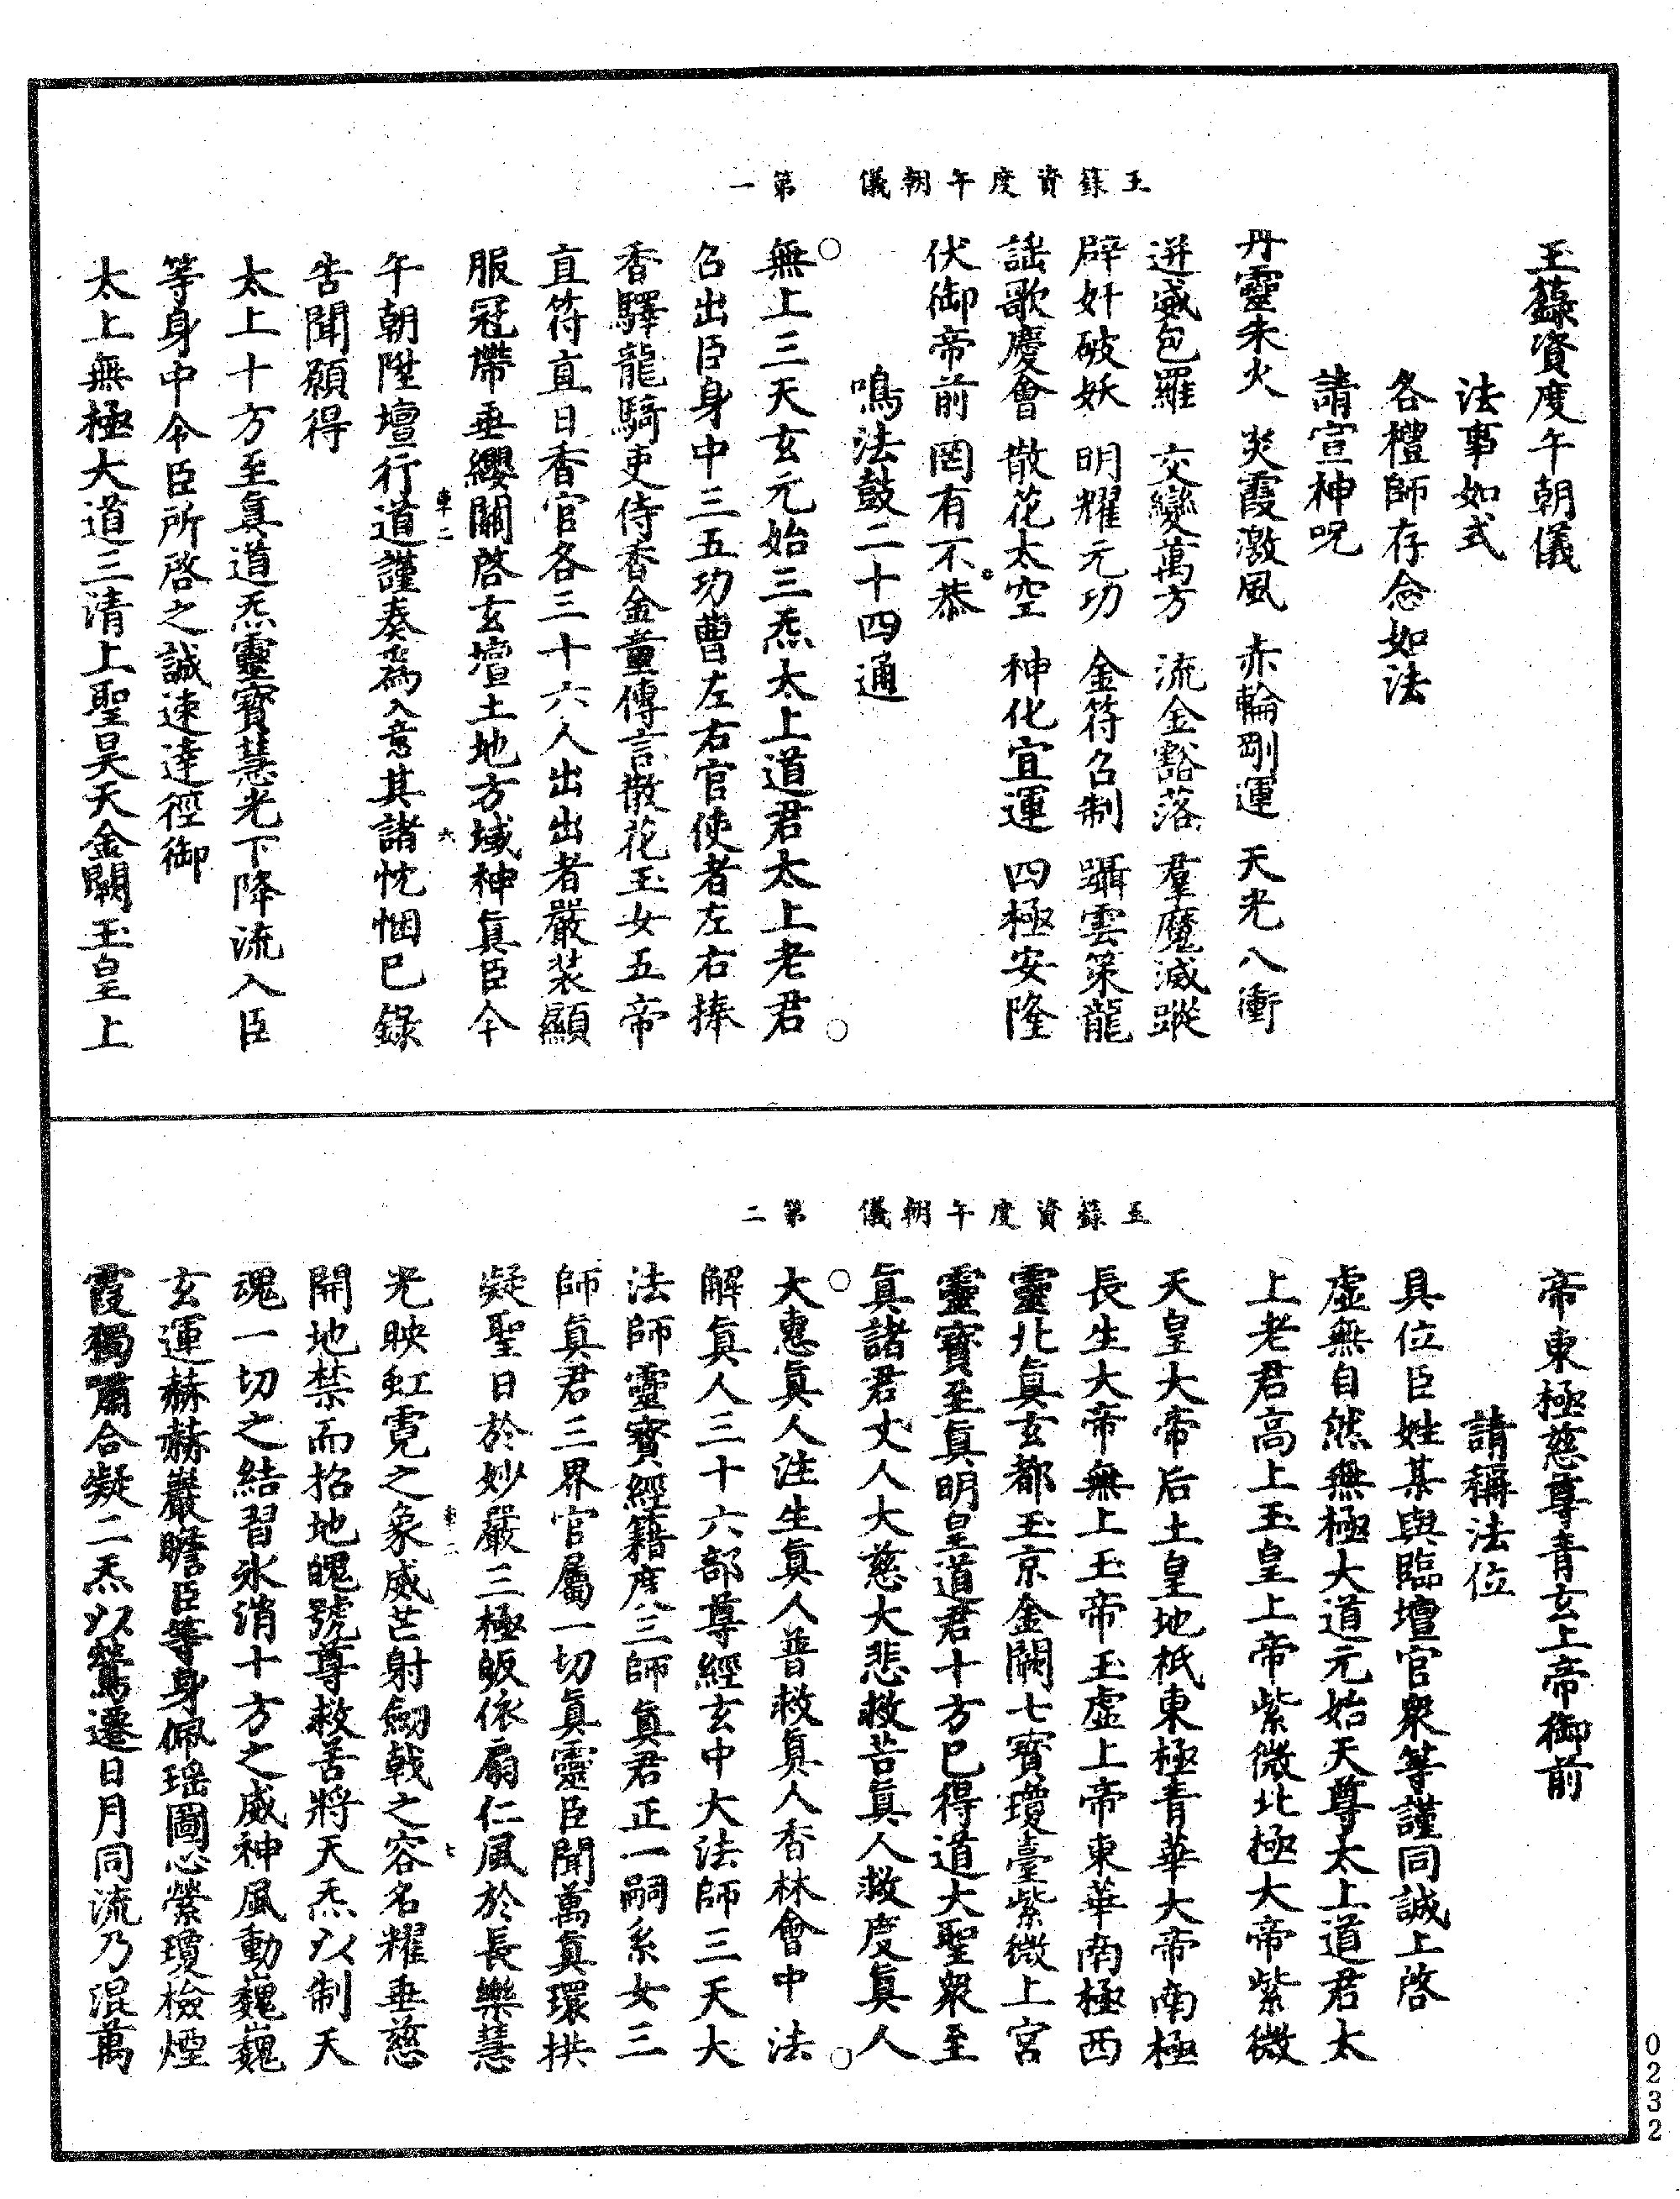 玉籙資度午朝儀　第一
玉籙資度午朝儀
法事如式
各禮師存念如法
請宣神呪
丹靈朱火　炎霞激風　赤輪剛運　天光八衝
逬威包羅　交變萬方　流金豁落　羣魔滅蹤
辟奸破妖　明耀元功　金符召制　躡雲策龍
謠歌慶會　散花太空　神化宜運　四極安隆
伏御帝前　罔有不恭
鳴法鼓二十四通
無上三天玄元始三炁太上道君太上老君
召出臣身中三五功曹左右官使者左右捧
香驛龍騎吏侍香金童傳言散花玉女五帝
直符直日香官各三十六人出出者嚴裝顯
服冠帶垂纓關啓玄壇土地方域神眞臣今
車二　六
午朝陞壇行道謹奏爲入意其諸忱悃巳錄
告聞願得
太上十方至眞道炁靈寶慧光下降流入臣
等身中令臣所啓之誠速達徑御
太上無極大道三清上聖昊天金闕玉皇上
玉籙資度午朝儀　第二
帝東極慈尊青玄上帝御前
請稱法位
具位臣姓某與臨壇官衆等謹同誠上啓
虛無自然無極大道元始天尊太上道君太
上老君高上玉皇上帝紫微北極大帝紫微
天皇大帝后土皇地祇東極青華大帝南極
長生大帝無上玉帝玉虛上帝東華南極西
靈北眞玄都玉京金闕七寶瓊臺紫微上宮
靈寶至眞明皇道君十方巳得道大聖衆至
眞諸君丈人大慈大悲救苦眞人救度眞人
大惠眞人注生眞人普救眞人香林會中　法
解眞人三十六部尊經玄中大法師三天大
法師靈寶經籍度三師眞君正一嗣系女三
師眞君三界官屬一切眞靈臣聞萬眞環拱
凝聖日於妙嚴三極皈依扇仁風於長樂慧
車二　七
光映虹霓之象威芒射劒戟之容名耀垂慈
開地禁而招地魄號尊救苦將天炁以制天
魂一切之結習氷消十方之威神風動巍巍
玄運赫赫巖瞻臣等身佩瑶圖心縈瓊檢煙
霞獨爾合凝二炁以鶯遷日月同流乃混萬
0232